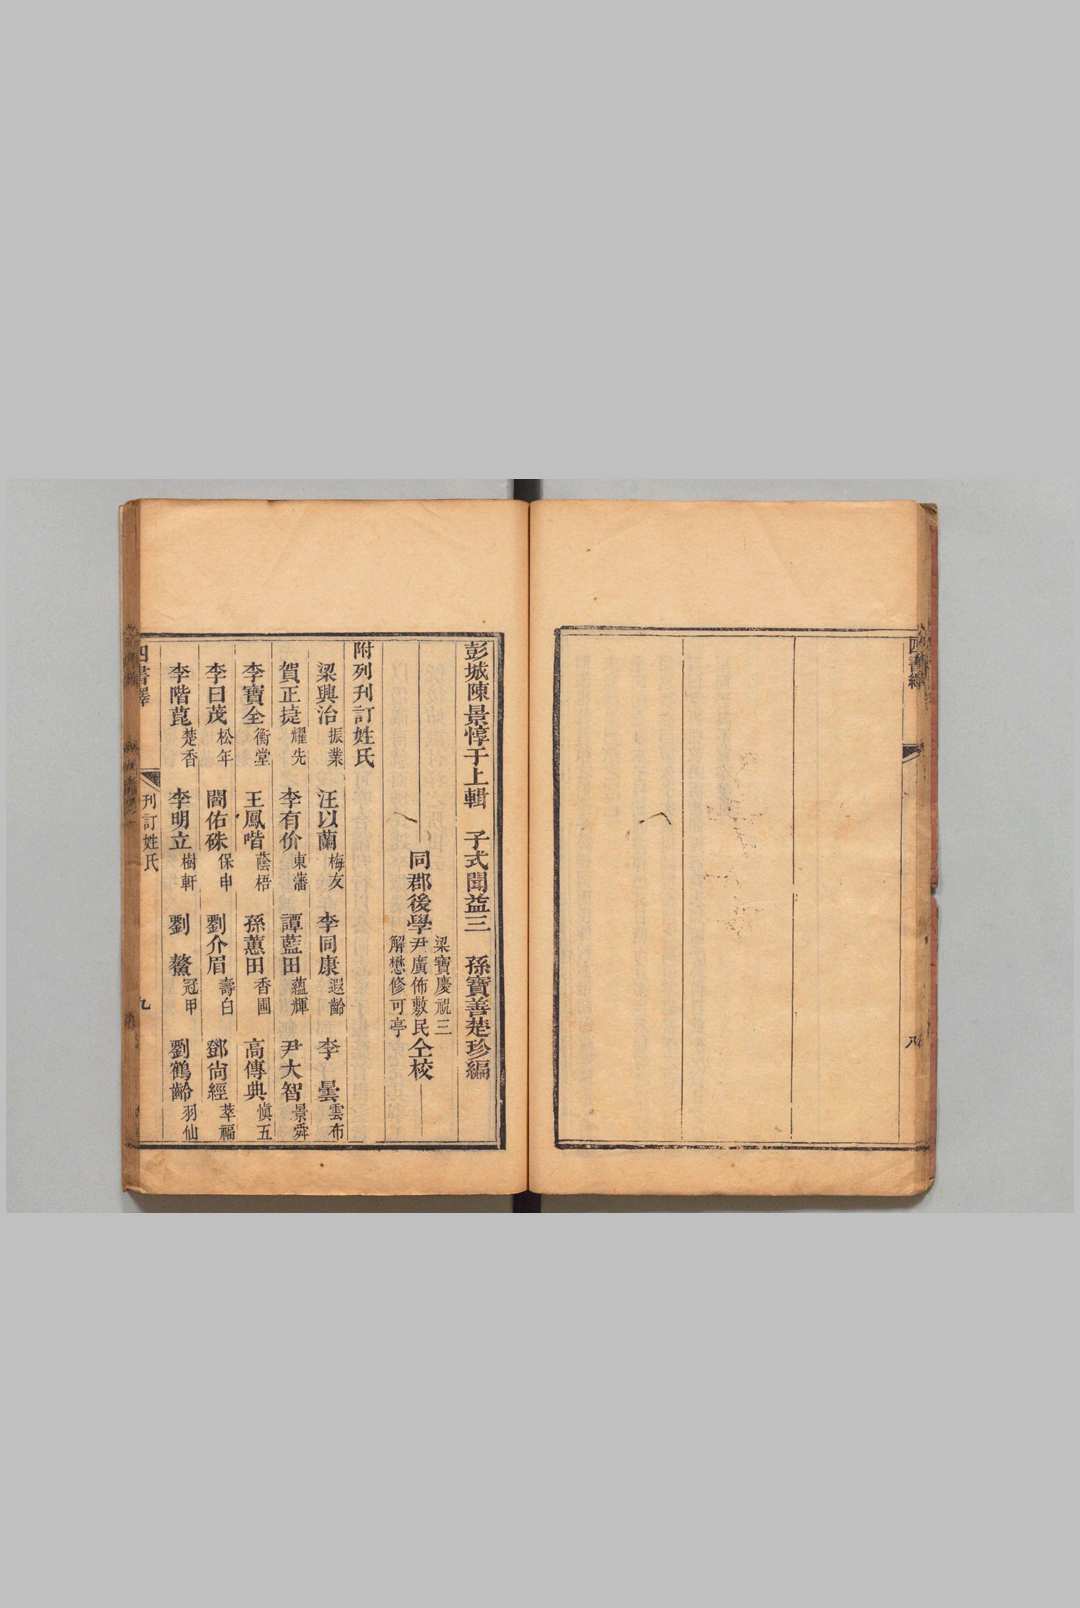 四書繹
八
彭城陳景惇于上輯　子式聞益三　孫寶善楚珍編
梁寶慶視三
同郡後學尹廣佈敷民仝校
解懋修可亭
附列刊訂姓氏
梁興治振業　汪以蘭梅友　李同康遐齡　李　曇雲布
賀正㨗耀先　李有价東藩　譚藍田蘊輝　尹大智景舜
李寶全衡堂　王鳳喈蔭梧　孫蕙田香圃　高傳典慎五
李日茂松年　閻佑硃保申　劉介眉壽白　鄧尙經萃福
李階蓂楚香　李明立樹軒　劉　鰲冠甲　劉鶴齡羽仙
四書繹
刊訂姓氏
九